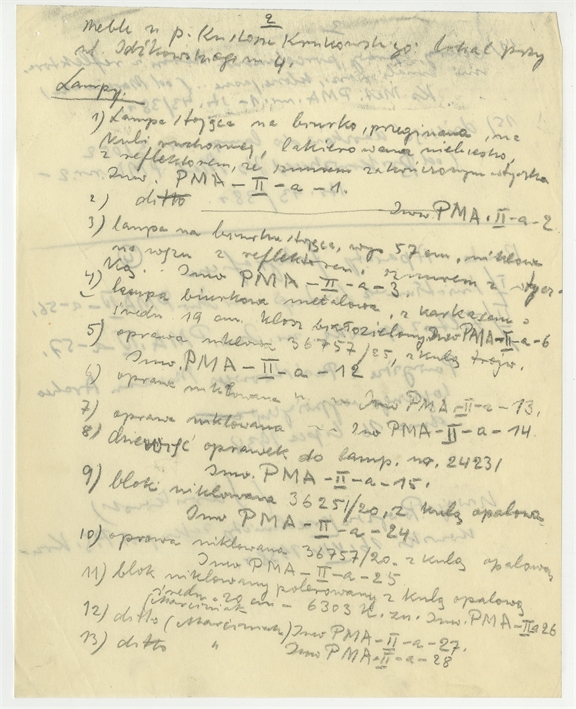 2
Meble u p. Kustosza Krukowskiego: lokal przy
ul. Idźkowskiego 4.
Lampy.
1) Lampa stojąca na biurko, przeginana, na
kuli ruchomej, lakierowana niebiesko,
z reflektorem, ze sznurem zakończonym wtyczką
Inw. PMA-II-a-1.
2) ditto Inw. PMA-II-a-2
3) lampa na biurko stojąca, wys. 57 cm, niklowa
z reflektorem, sznurem z wtycz-
ką. Inw PMA-II-a-3
4) lampa biurkowa metalowa, z karkasem
średn 19 cm. klosz białozielony Inw PMA-II-a-6
5) oprawa niklow. 36757/25, z kulą
Inw. PMA-II-a-12
6) oprawa niklowana " Inw PMA-II-a-13.
7) oprawa niklowana Inw PMA-II-a-14.
8) dziewięć oprawek do lamp. nr. 24231
Inw. PMA-II-a-15.
9) bloki niklowana 36251/20, z kulą opalową
Inw PMA-II-a-24
10) oprawa niklowana 36757/20. z kulą opalową
Inw PMA-II-a-25
11) blok niklowany polerowany z kulą opalową
średn. 20 cm - 6303 Inw. PMA-II-a 26
(Marciniak
12) ditto (Marciniak) Inw PMA-II-a-27.
13) ditto " Inw PMA-II-a-28